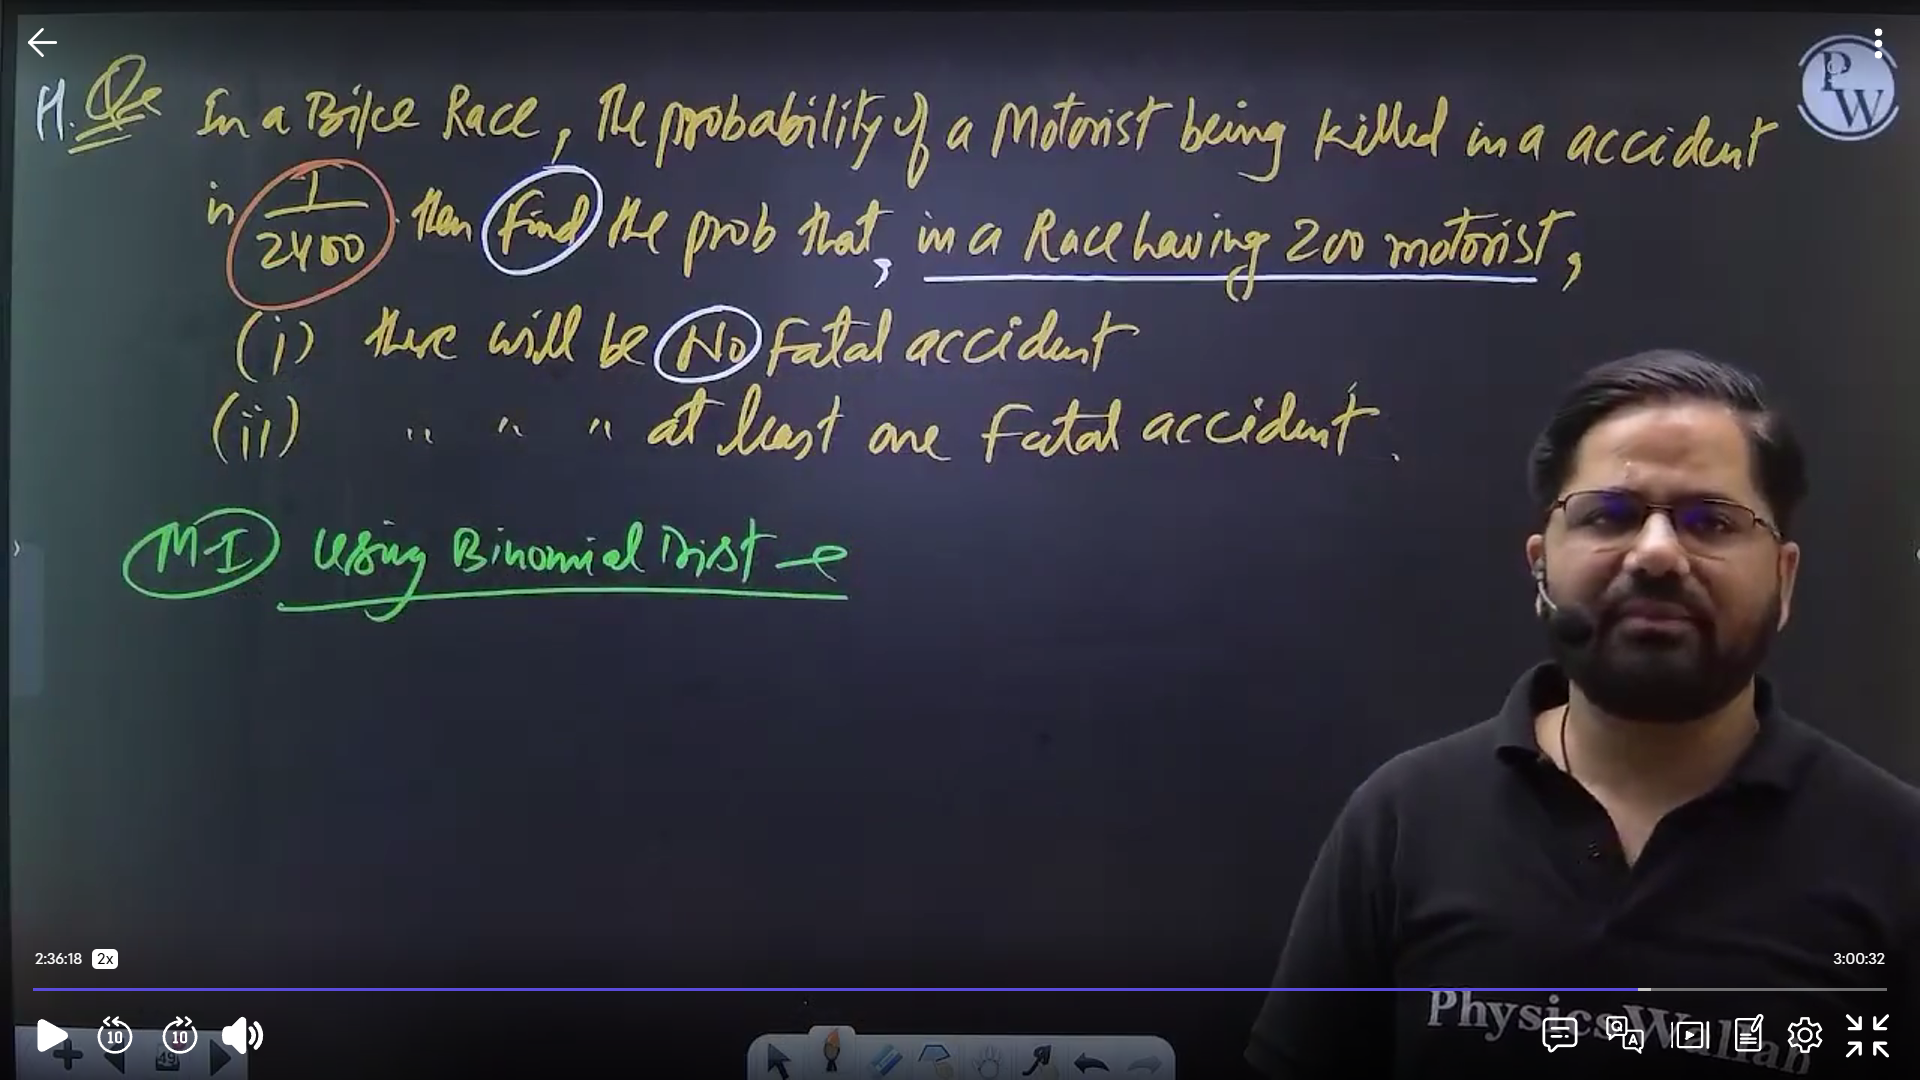 PW
H.Qs In a Bike Race, the probability of a Motorist being killed in a accident
in 1/2400 then find the prob that, in a Race having 200 motorist,
(i) there will be No Fatal accident
(ii) " " " at least one Fatal accident.
M-I Using Binomial Dist
2:36:18 2x
3:00:32
10 10
49
PhysicsWallah